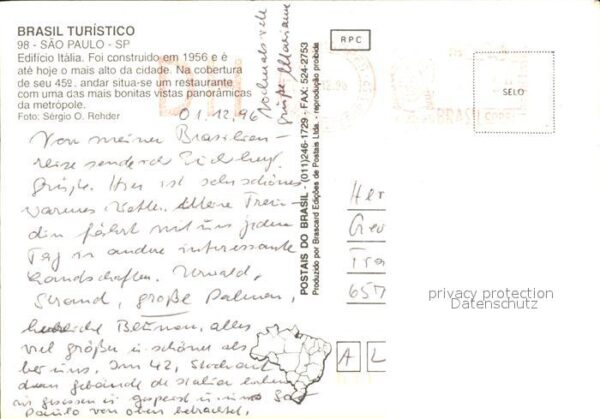 BRASIL TURÍSTICO
98 - SÃO PAULO - SP
Edifício Itália. Foi construido em 1956 e é
até hoje o mais alto da cidade. Na cobertura
de seu 45º. andar situa-se um restaurante
com uma das mais bonitas vistas panorâmicas
da metrópole.
Foto: Sérgio O. Rehder
01.12.96
Von meiner Brasilien-
reise sende ich Euch herzl.
Grüße. Hier ist sehr schönes
warmes Wetter. Meine Freun-
din fährt mit uns jeden
Tag in andere interessante
Landschaften. Urwald,
Strand, große Palmen,
Blumen, alles
viel größer u. schöner als
bei uns. Im 42. Stockwerk
dem Gebäude de Italia haben
wir gegessen u.
Paulo von oben betrachtet.
Nochmals viele
Grüße Marianne
POSTAIS DO BRASIL - (011)246-1729 - FAX: 524-2753
Produzido por Brascard Edições de Postais Ltda. - reprodução proibida
RPC
12.96
BRASIL
SELO
Her
657
privacy protection
Datenschutz
A L